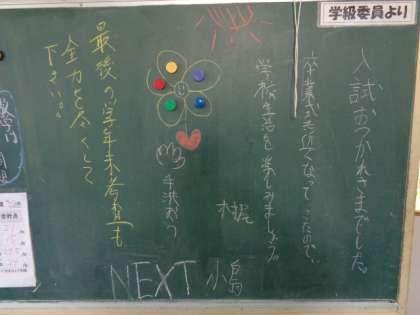 学級委員より
入試おつかれさまでした。
卒業式も近くなってきたので、
学校生活を楽しみましょう。
最後の学年末考査も
全力を尽くして
下さい。
NEXT 小島